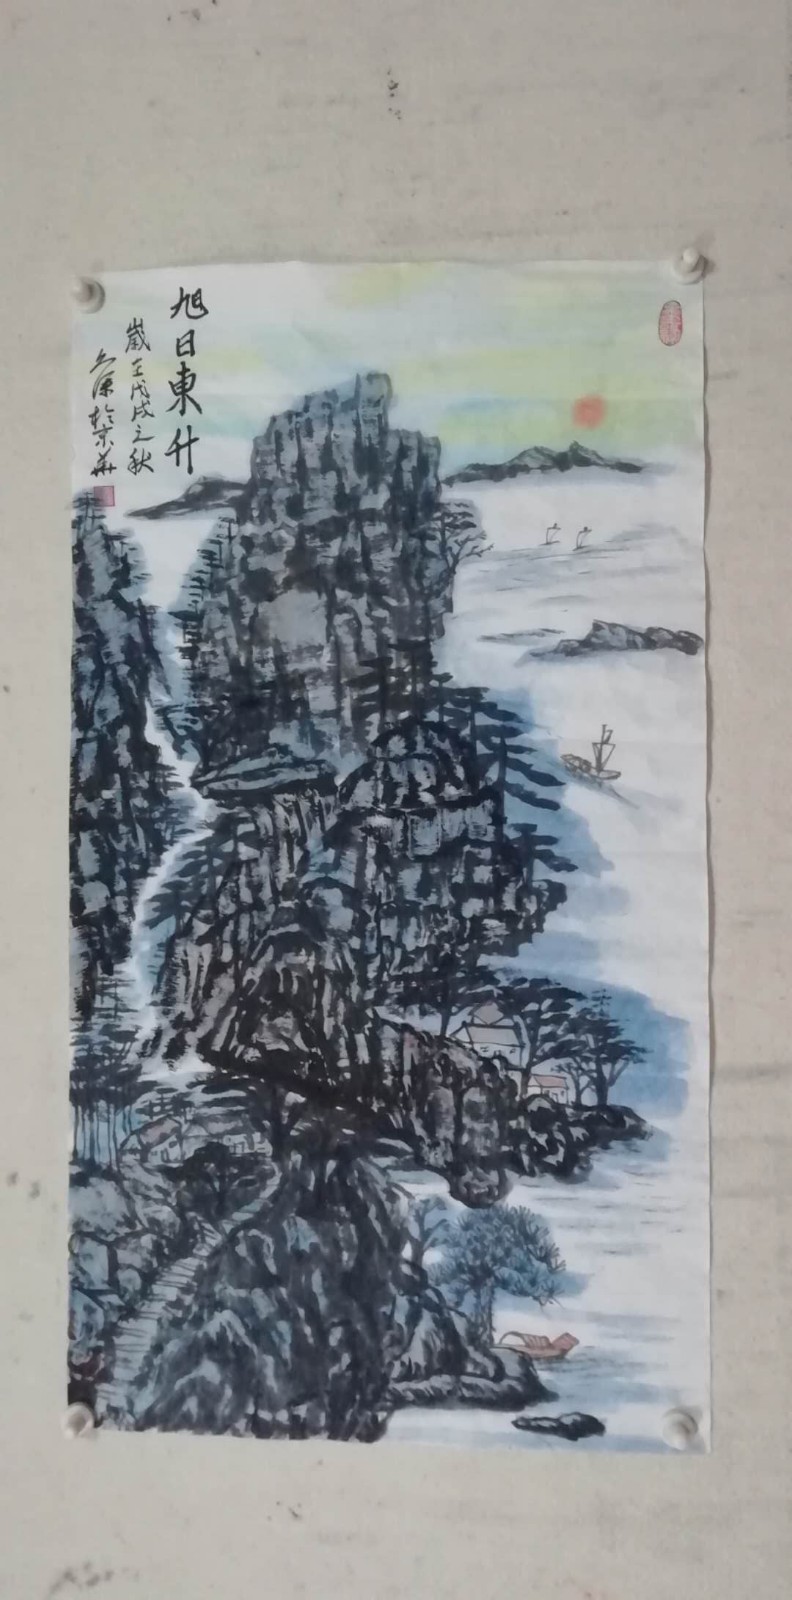 旭日東升
歲在戊戌之秋
於京華